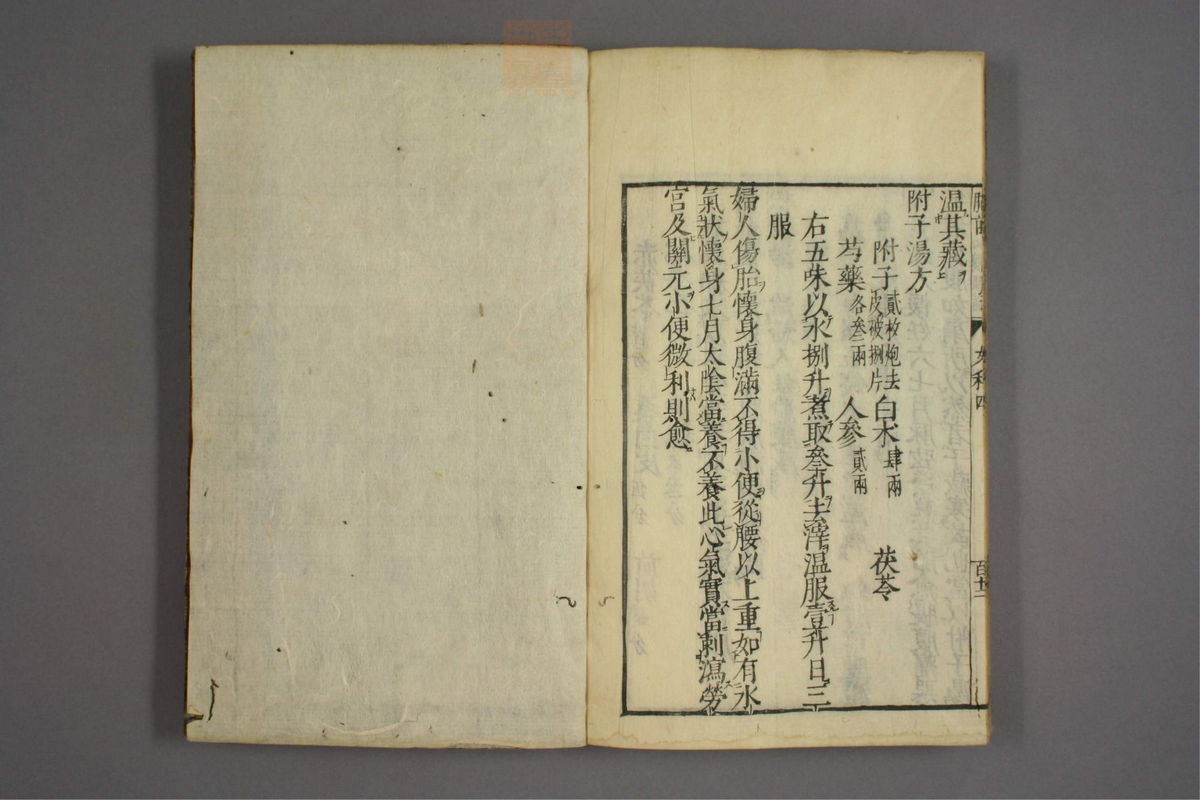 溫其藏
附子湯方
附子貳枚炮去皮破捌片 白朮肆兩 茯苓
芍藥各叁兩 人參貳兩
右五味以水捌升煮取叁升去滓溫服壹升日三
服
婦人傷胎懷身腹滿不得小便從腰以上重如有水
氣狀懷身七月太陰當養不養此心氣實當刺瀉勞
宮及關元小便微利則愈